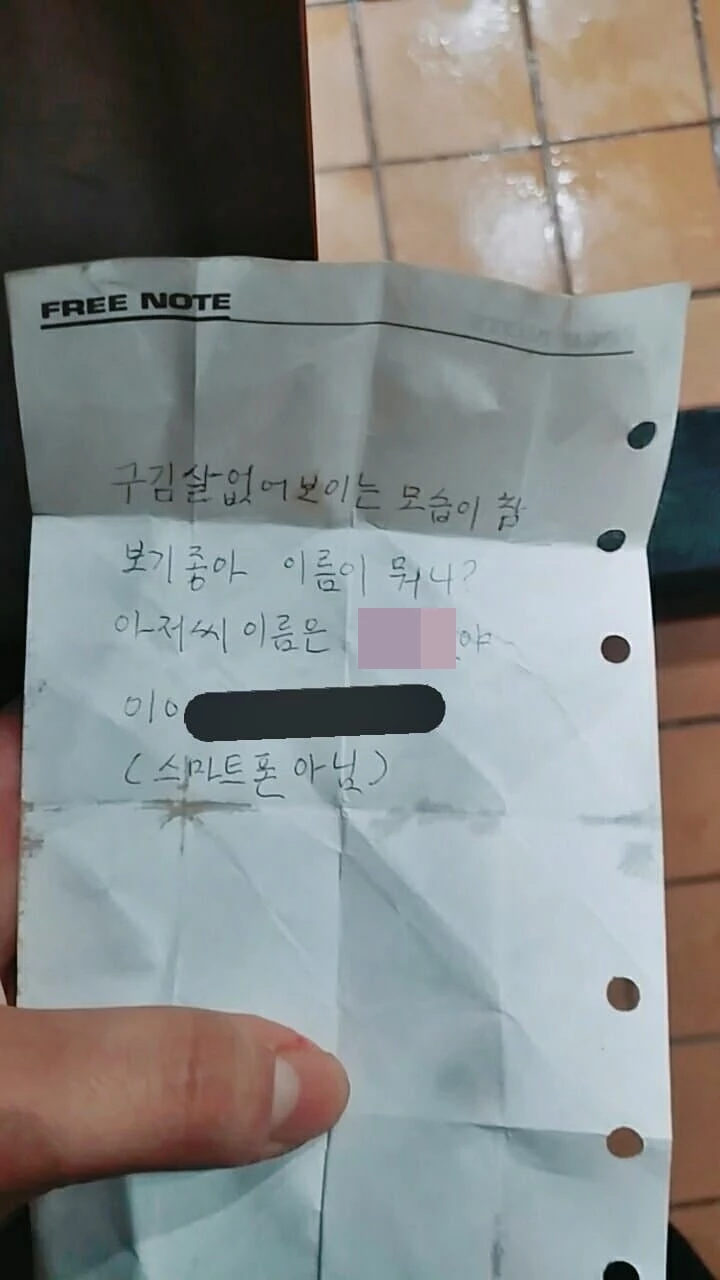 FREE NOTE
구김살없어보이는 모습이 참
보기좋아 이름이 뭐니?
아저씨 이름은 야
010
(스마트폰 아님)